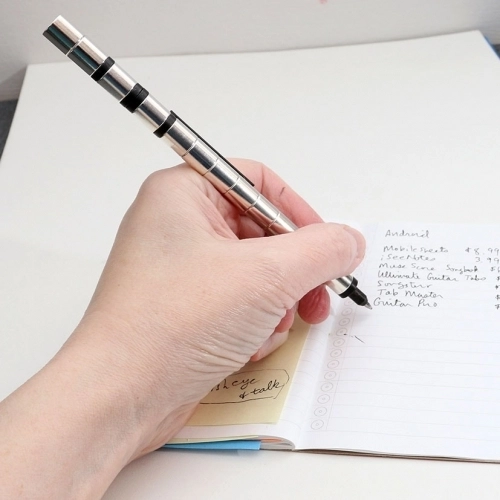 Android
Mobile Sheets $8.99
iSeeNotes 3.99
MuseScore Songbook $
Ultimate Guitar Tabs $
Songsterr
Tab Master
Guitar Pro $
eye
& talk